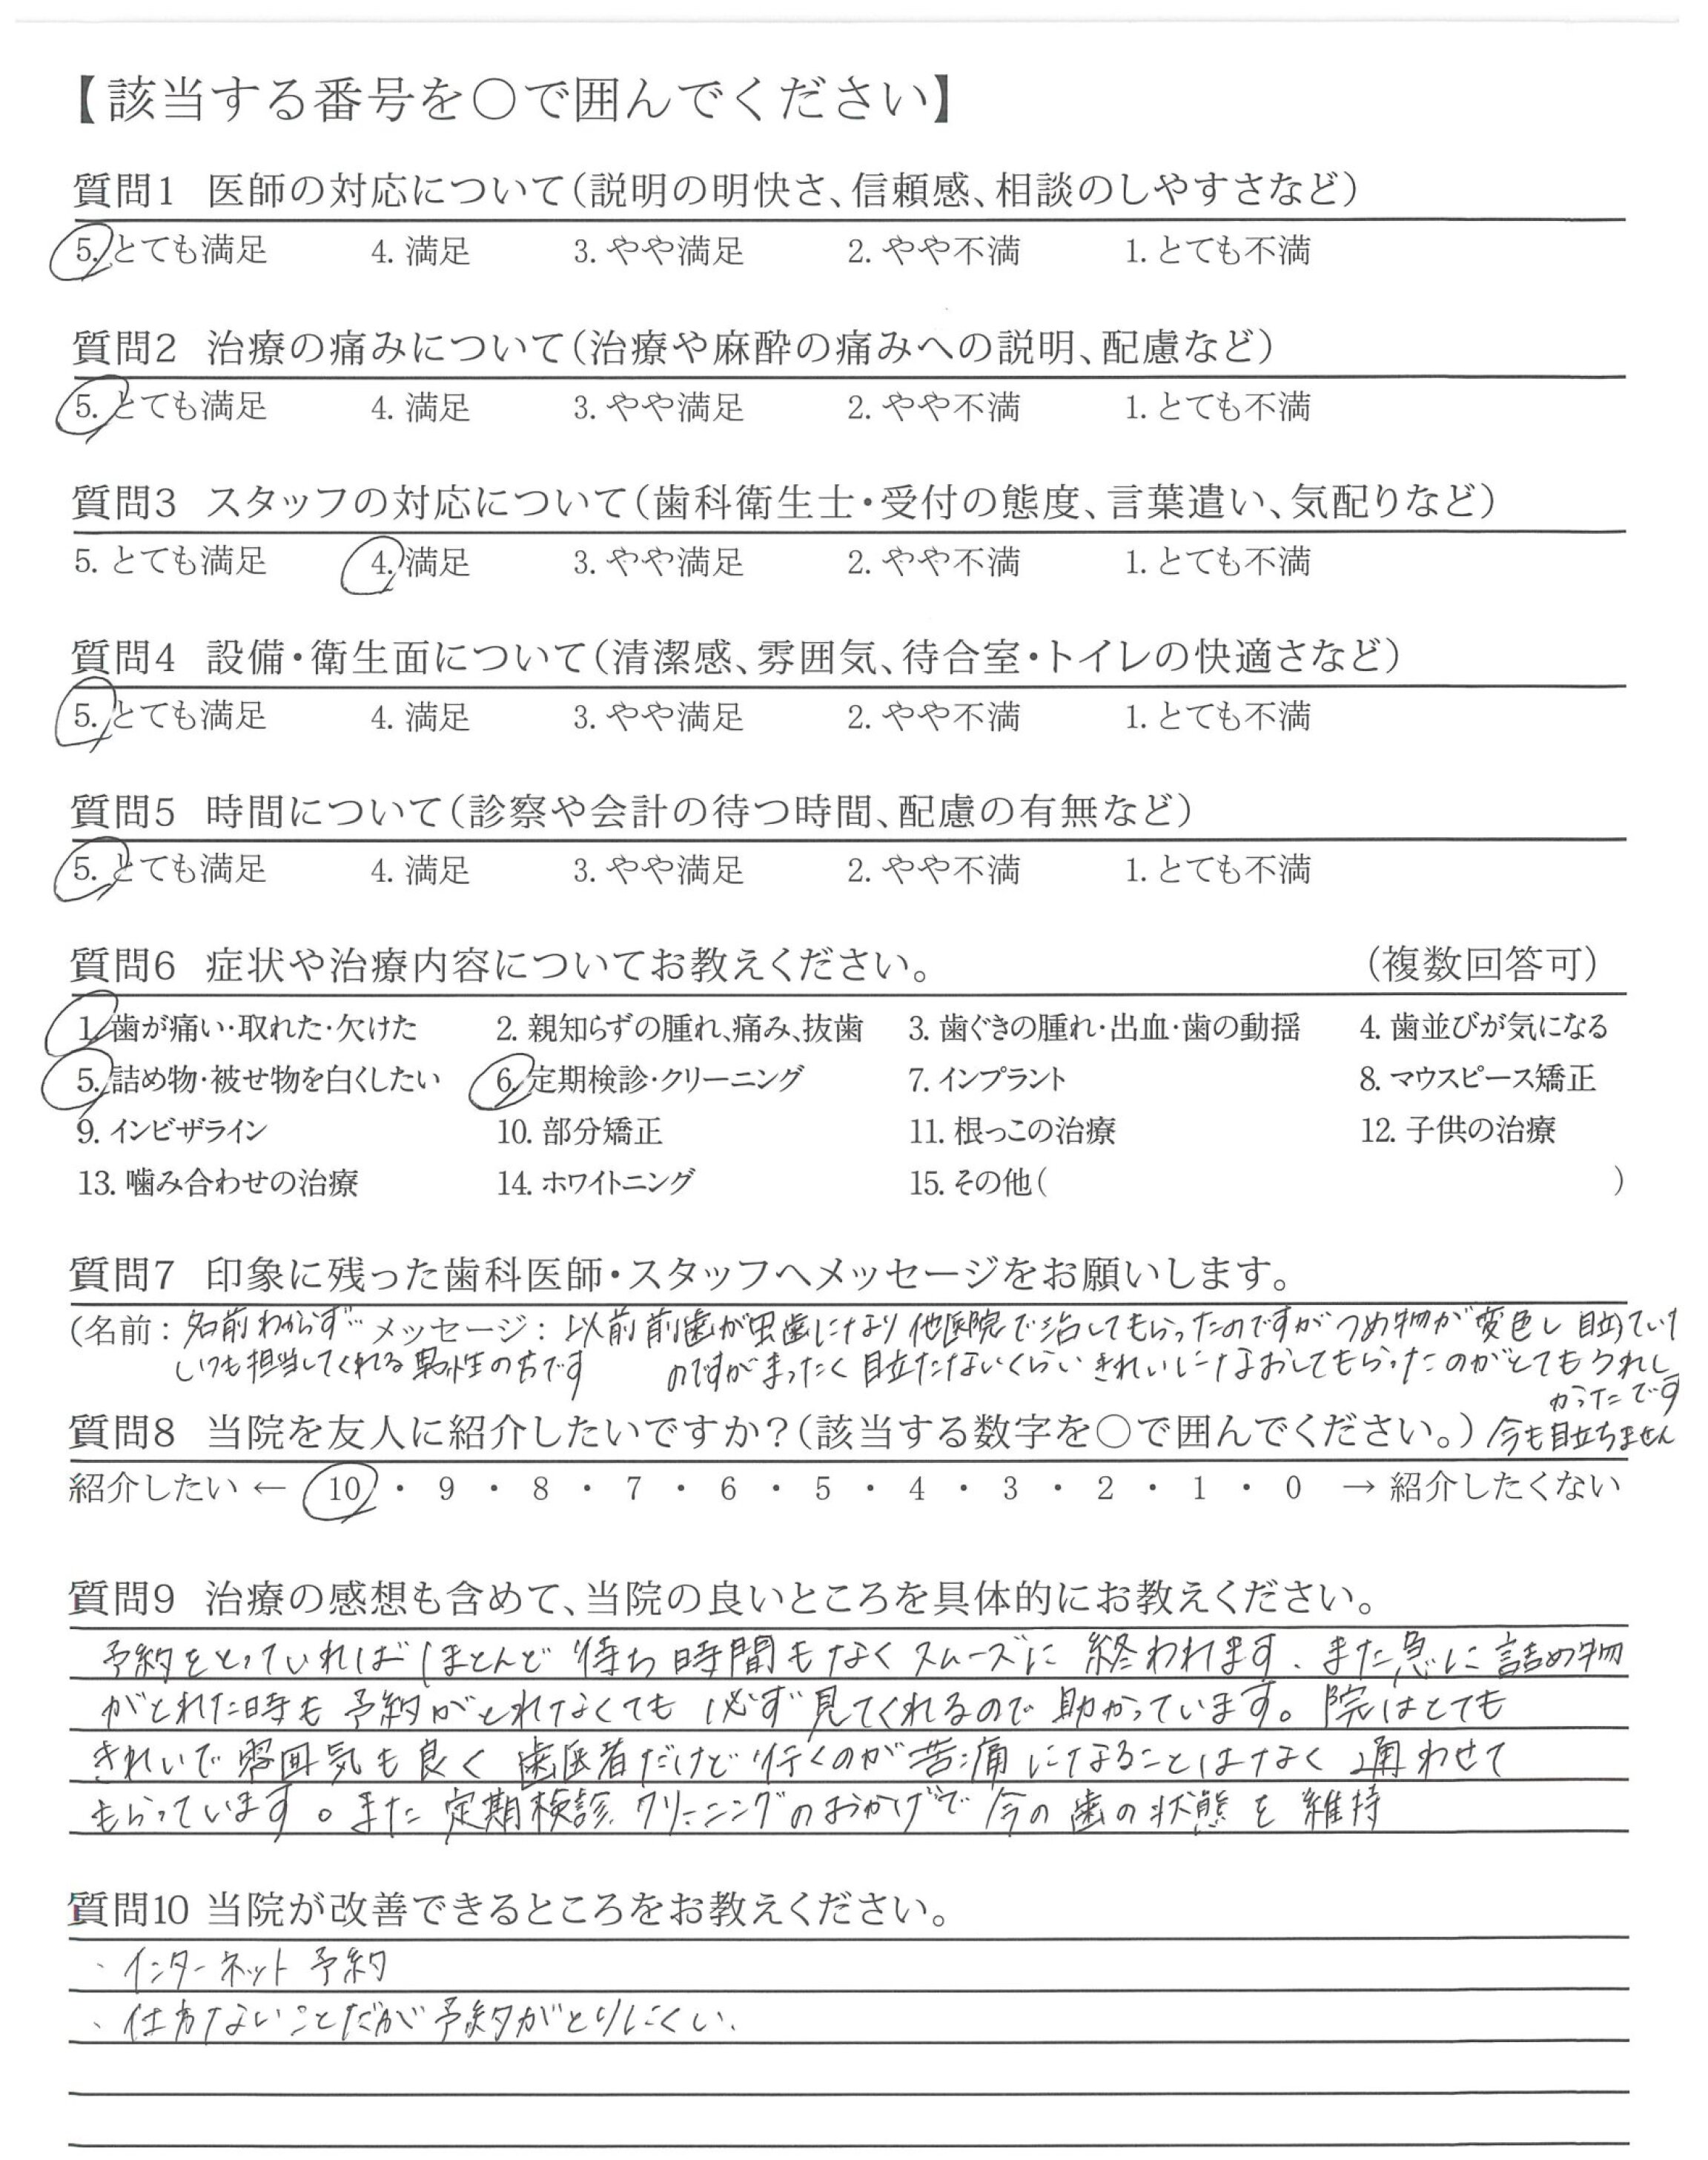 【該当する番号を〇で囲んでください】
質問1 医師の対応について(説明の明快さ、信頼感、相談のしやすさなど)
5. とても満足 4. 満足 3. やや満足 2. やや不満 1. とても不満
質問2 治療の痛みについて(治療や麻酔の痛みへの説明、配慮など)
5. とても満足 4. 満足 3. やや満足 2. やや不満 1. とても不満
質問3 スタッフの対応について(歯科衛生士・受付の態度、言葉遣い、気配りなど)
5. とても満足 4. 満足 3. やや満足 2. やや不満 1. とても不満
質問4 設備・衛生面について(清潔感、雰囲気、待合室・トイレの快適さなど)
5. とても満足 4. 満足 3. やや満足 2. やや不満 1. とても不満
質問5 時間について(診察や会計の待つ時間、配慮の有無など)
5. とても満足 4. 満足 3. やや満足 2. やや不満 1. とても不満
質問6 症状や治療内容についてお教えください。 (複数回答可)
1. 歯が痛い・取れた・欠けた 2. 親知らずの腫れ、痛み、抜歯 3. 歯ぐきの腫れ・出血・歯の動揺 4. 歯並びが気になる
5. 詰め物・被せ物を白くしたい 6. 定期検診・クリーニング 7. インプラント 8. マウスピース矯正
9. インビザライン 10. 部分矯正 11. 根っこの治療 12. 子供の治療
13. 噛み合わせの治療 14. ホワイトニング 15. その他( )
質問7 印象に残った歯科医師・スタッフへメッセージをお願いします。
(名前: 名前わからず… メッセージ: 以前前歯が虫歯になり他医院で治してもらったのですがつめ物が変色し目立っていた
いつも担当してくれる男性の方です のですがまったく目立たないくらいきれいになおしてもらったのがとてもうれし
かったです
質問8 当院を友人に紹介したいですか?(該当する数字を〇で囲んでください。) 今も目立ちません
紹介したい ← 10 ・ 9 ・ 8 ・ 7 ・ 6 ・ 5 ・ 4 ・ 3 ・ 2 ・ 1 ・ 0 → 紹介したくない
質問9 治療の感想も含めて、当院の良いところを具体的にお教えください。
予約をとっていればほとんど待ち時間もなくスムーズに終われます、また急に詰め物
がとれた時も予約がとれなくても必ず見てくれるので助かっています。院はとても
きれいで雰囲気も良く歯医者だけど行くのが苦痛になることはなく通わせて
もらっています。また定期検診、クリーニングのおかげで今の歯の状態を維持
質問10 当院が改善できるところをお教えください。
・インターネット予約
・仕方ないことだが予約がとりにくい、